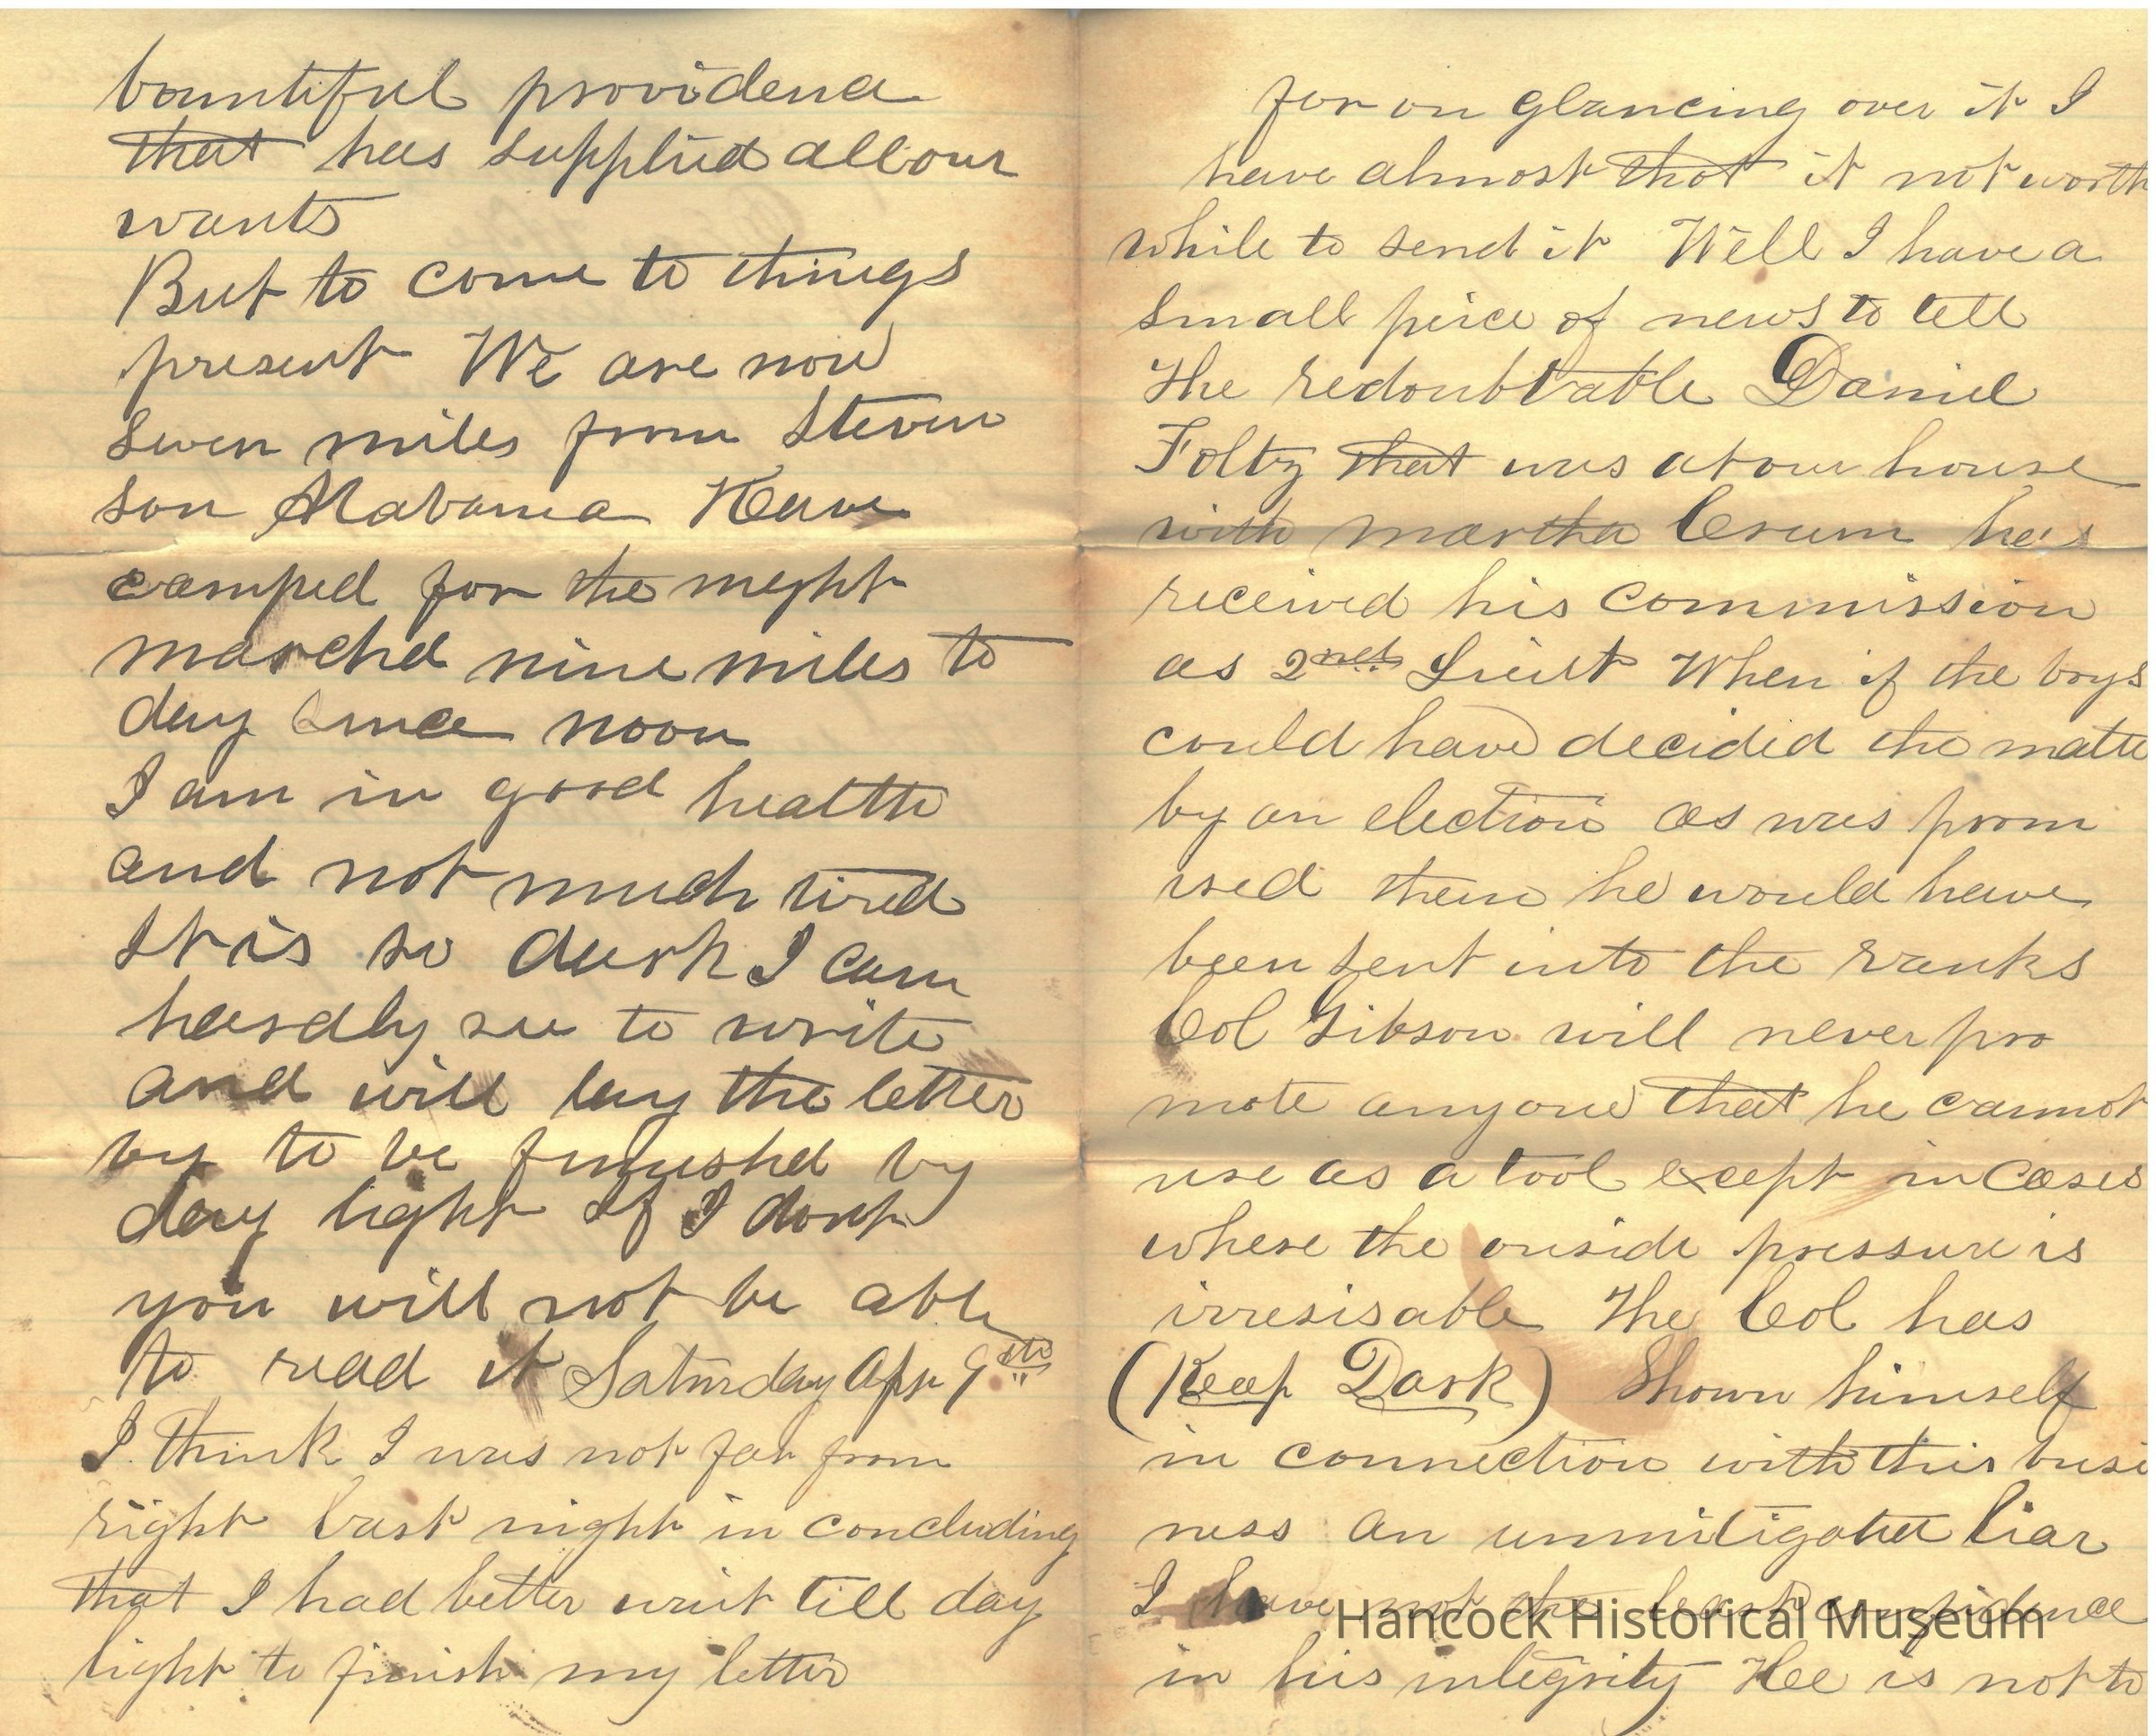 bountiful providence
that has supplied all our
wants
But to come to things
present We are now
seven miles from Steven
son Alabama Have
camped for the night
marched nine miles to
day since noon
I am in good health
and not much tired
It is so dark I can
hardly see to write
and will lay the letter
by to be finished by
day light If I dont
you will not be able
to read it Saturday Apr 9th
I think I was not far from
right last night in concluding
that I had better wait till day
light to finish my letter
for on glancing over it I
have almost that it not worth
while to send it Well I have a
small peice of news to tell
The redoubtable Daniel
Foltz that was at our house
with Martha Crum has
received his commission
as 2nd Lieut When if the boys
could have decided the matte
by an election as was prom
ised them he would have
been sent into the ranks
Col Gibson will never pro
mote anyone that he cannot
use as a tool except in cases
where the ouside pressure is
irresisable The Col has
(Keep Dark) shown himself
in connection with this busi
ness an unmitigated liar
I have not the least confidence
in his integrity Hee is not to
Hancock Historical Museum